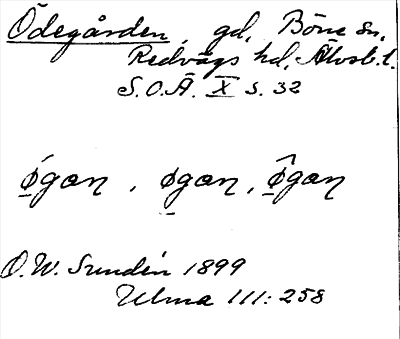 Ödegården, gd, Böne sn,
Redvägs hd, Älvsb. l.
S.O.Ä. X s. 32
ǿgan, øgan, ø̂gan
O.W. Sundén 1899
Ulma 111:258